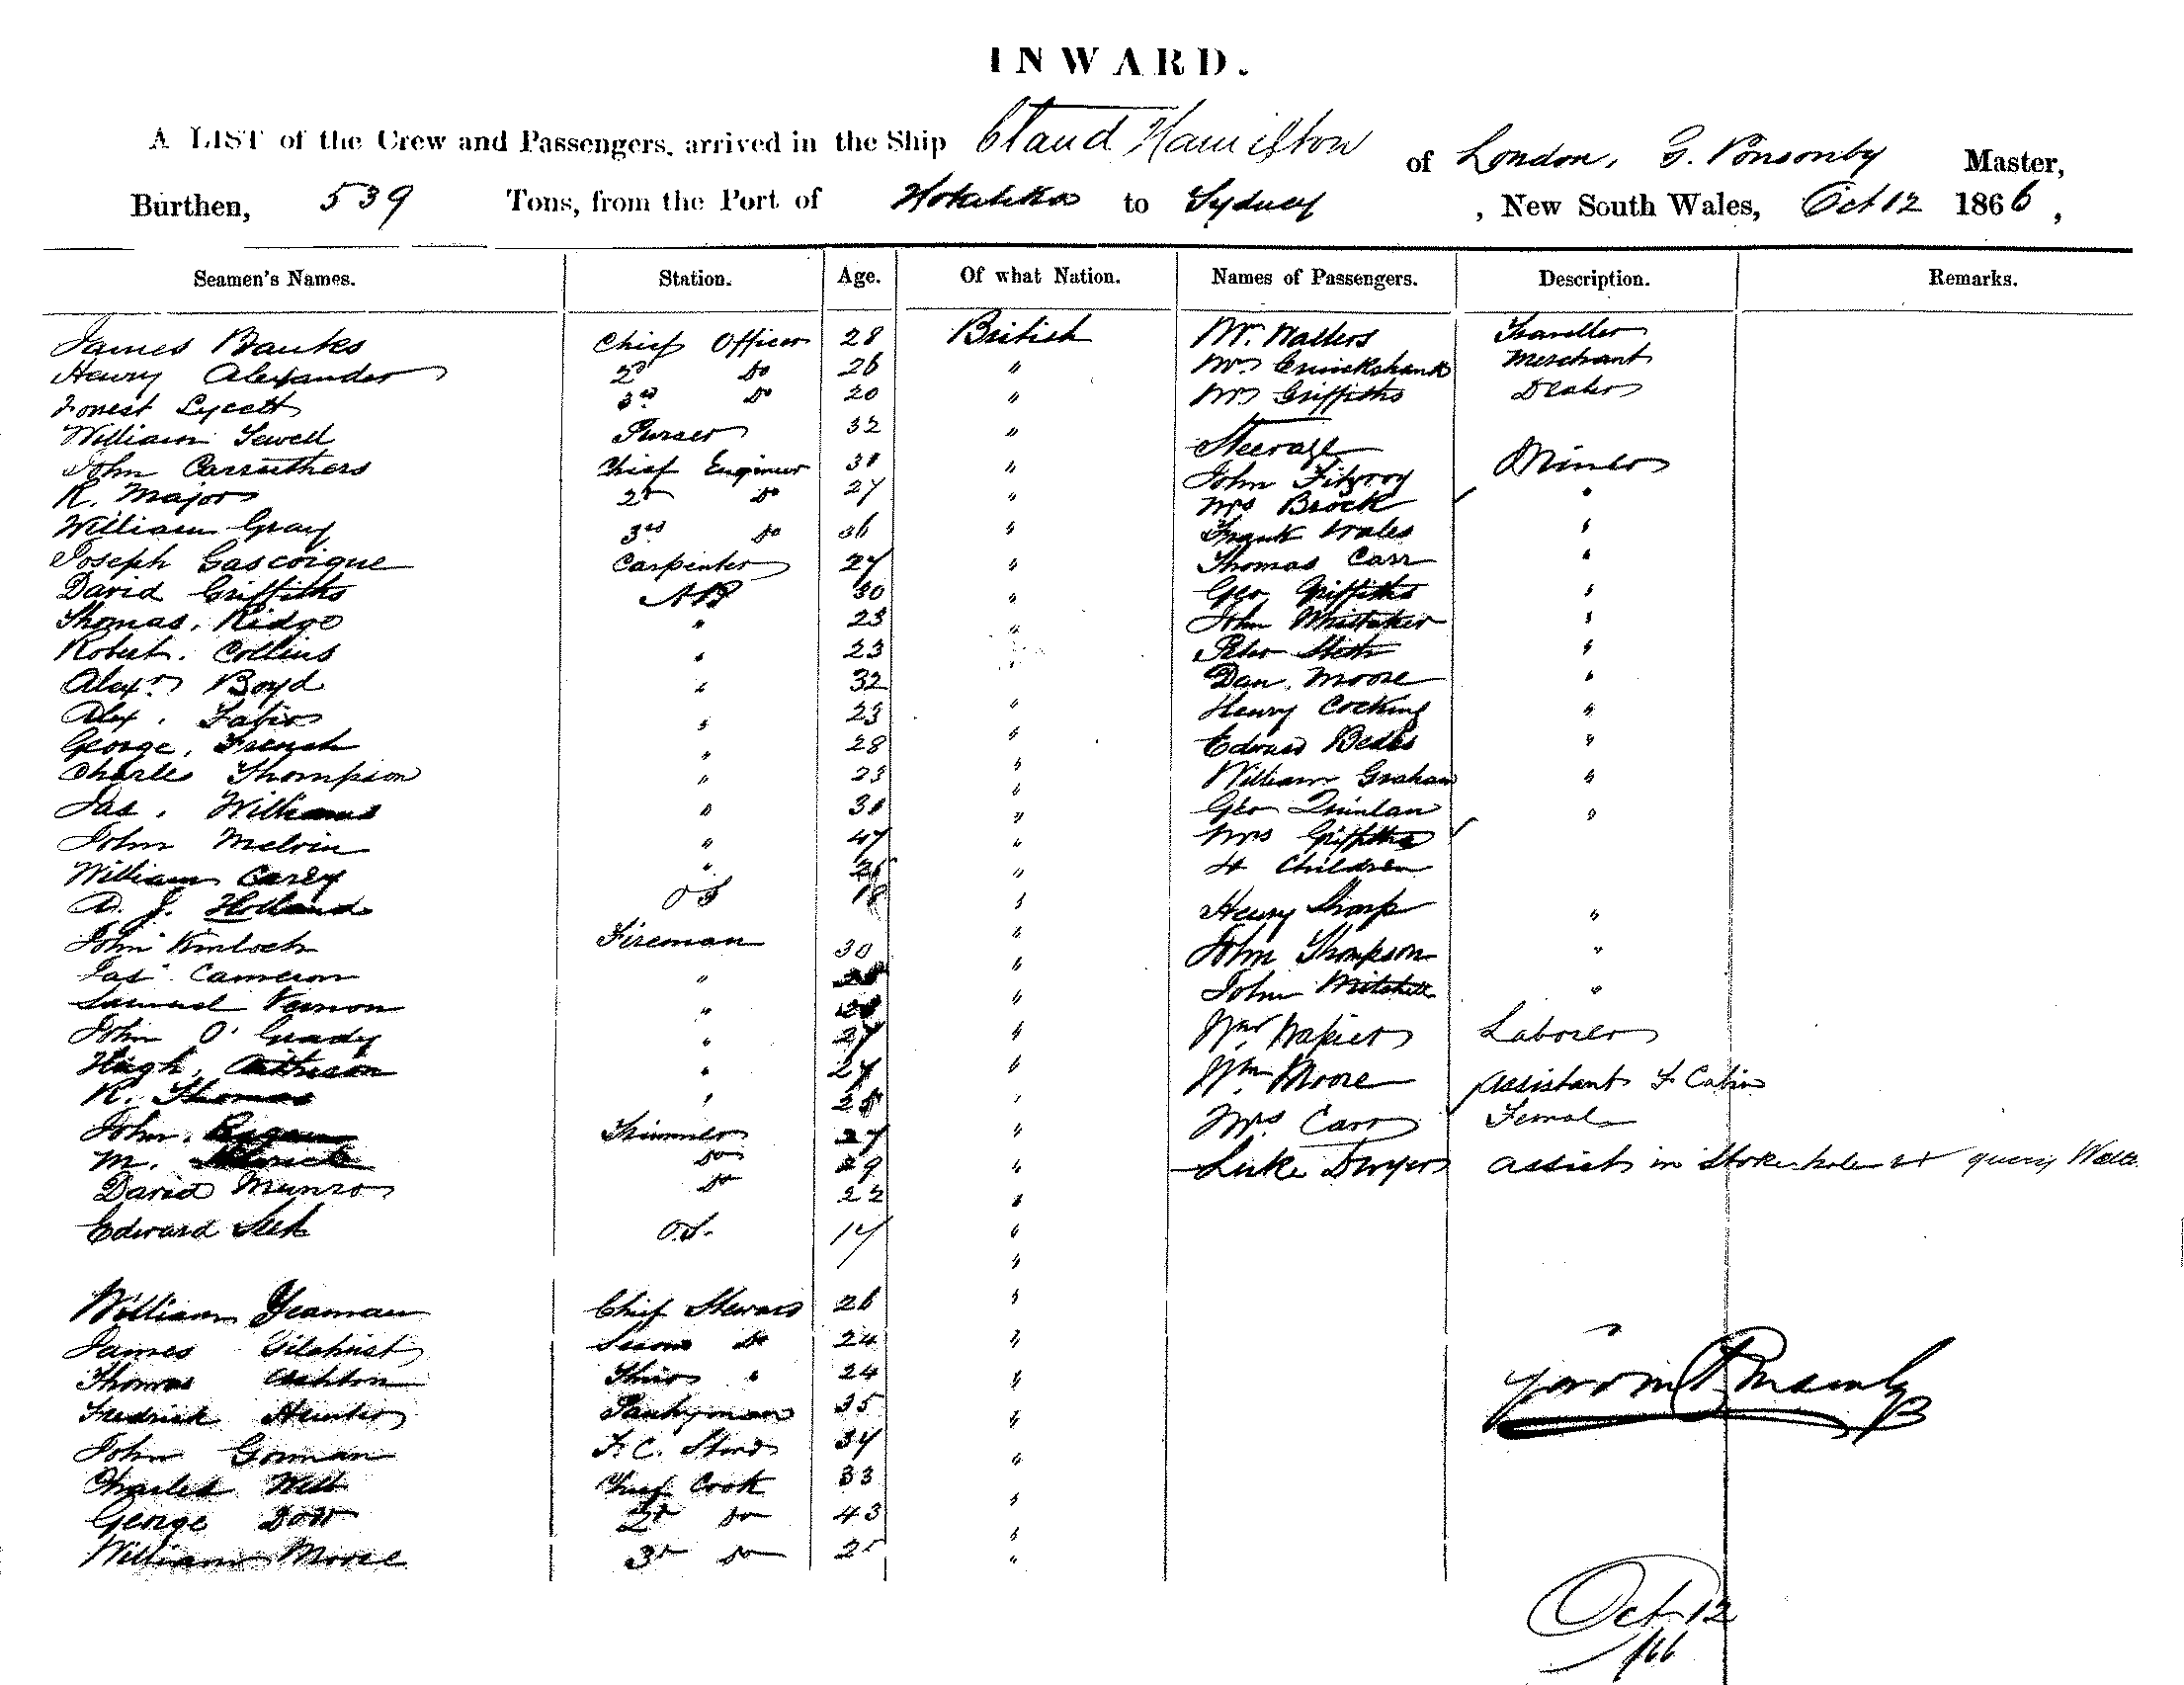 INWARD.
A LIST of the Crew and Passengers, arrived in the Ship Claud Hamilton of London, G. Ponsonby Master,
Burthen, 539 Tons, from the Port of Hokitika to Sydney, New South Wales, Oct 12 1866,
Seamen's Names. Station. Age. Of what Nation. Names of Passengers. Description. Remarks.
James Banks Chief Officer 28 British Mr. Walters Traveller
Henry Alexander 2d Do 26 " Mr Cruickshank Merchant
Forrest Lycett 3rd Do 20 " Mr Griffiths Dealer
William Sewell Purser 32 " Steerage
John Carruthers Chief Engineer 31 " John Fitzroy Miner
R. Major 2d Do 27 " Mrs Brock "
William Gray 3rd Do 36 " Frank Wales "
Joseph Gascoigne Carpenter 27 " Thomas Carr "
David Griffiths AB 30 " Geo Griffiths "
Thomas. Ridge " 23 " John Whittaker "
Robert. Collins " 23 " Peter "
Alexr Boyd " 32 Dan. Moore "
Alex. " 23 " Henry Cocking "
George. French " 28 " Edward "
Charles Thompson " 23 " William Graham "
Jas. Williams " 31 " Geo Quinlan "
John Melvin " 47 " Mrs Griffiths
William Carey " " 4 Children
A. J. Holland OS 18 " Henry Sharp "
John Kinloch Fireman 30 " John Thompson "
Jas. Cameron " " John Mitchell "
Samuel Vernon " " Wm Napier Laborer
John O'Grady " 27 " Wm Moore Assistant F Cabin
Hugh. Aitkison " 27 " Mrs Carr Female
R. Thomas " "
John. Regan Trimmer 27 " Luke Dwyer assists in Stokehole
M. Do 29 "
David Munro Do 22 "
Edward O.S. 17 "
William Yeaman Chief Steward 26 "
James Gilchrist Second Do 24 "
Thomas Ashton Third " 24 "
Fredrick Hunter Pantryman 35 "
John Gorman F. C. Stwd 34 "
Charles Webb Chief Cook 33 "
George Dow 2d Do 43 "
William Moore 3d Do 25 "
Oct 12
/66